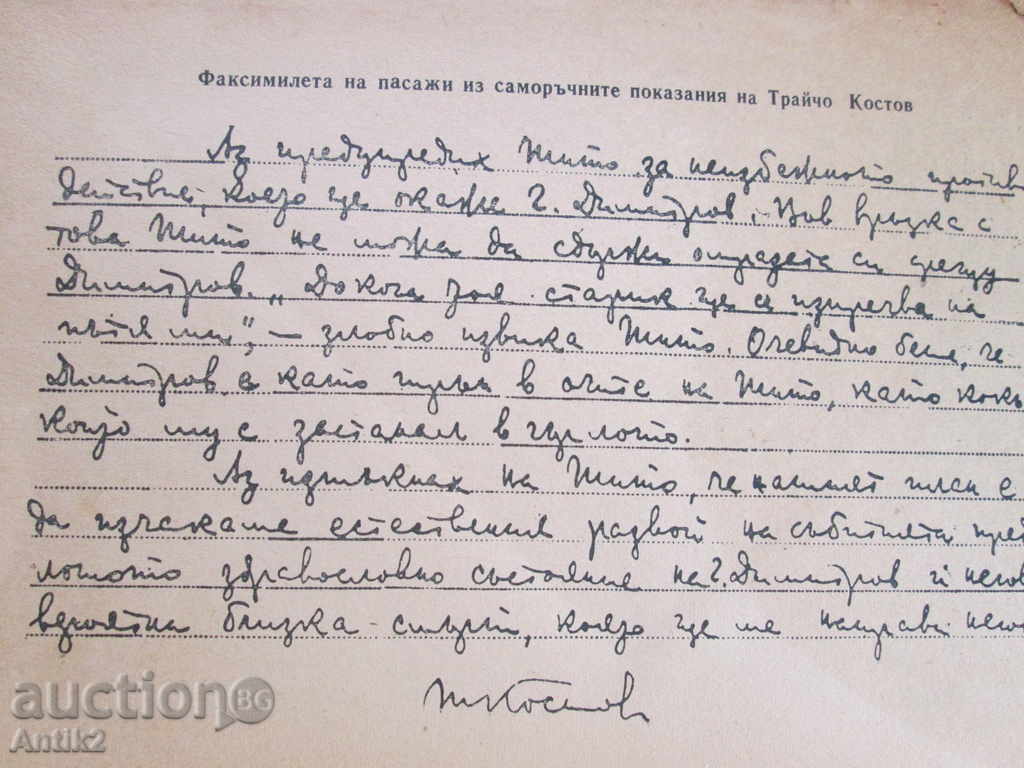 Факсимилета на пасажи из саморъчните показания на Трайчо Костов
Аз предупредих Тито за неизбежното против
действие, което ще окаже Г. Димитров. Във връзка с
това Тито не можа да сдържи омразата си срещу
Димитров. „Докога тоя старик ще се изпречва на
пътя ми", — злобно извика Тито. Очевидно беше, че
Димитров е като трън в очите на Тито, като кокъ
който му е застанал в гърлото.
Аз изтъкнах на Тито, че нашият план е
да изчакаме естествения развой на събитията пред
лошото здравословно състояние на Г. Димитров и негов
вероятна близка смърт, която ще ме направи него
ТрКостов
auction BG
Antik2